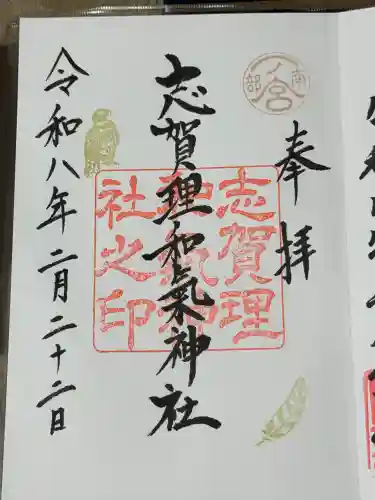 奉拝
南部一ノ宮
志賀理和氣神社
志賀理
和氣神
社之印
令和八年二月二十二日